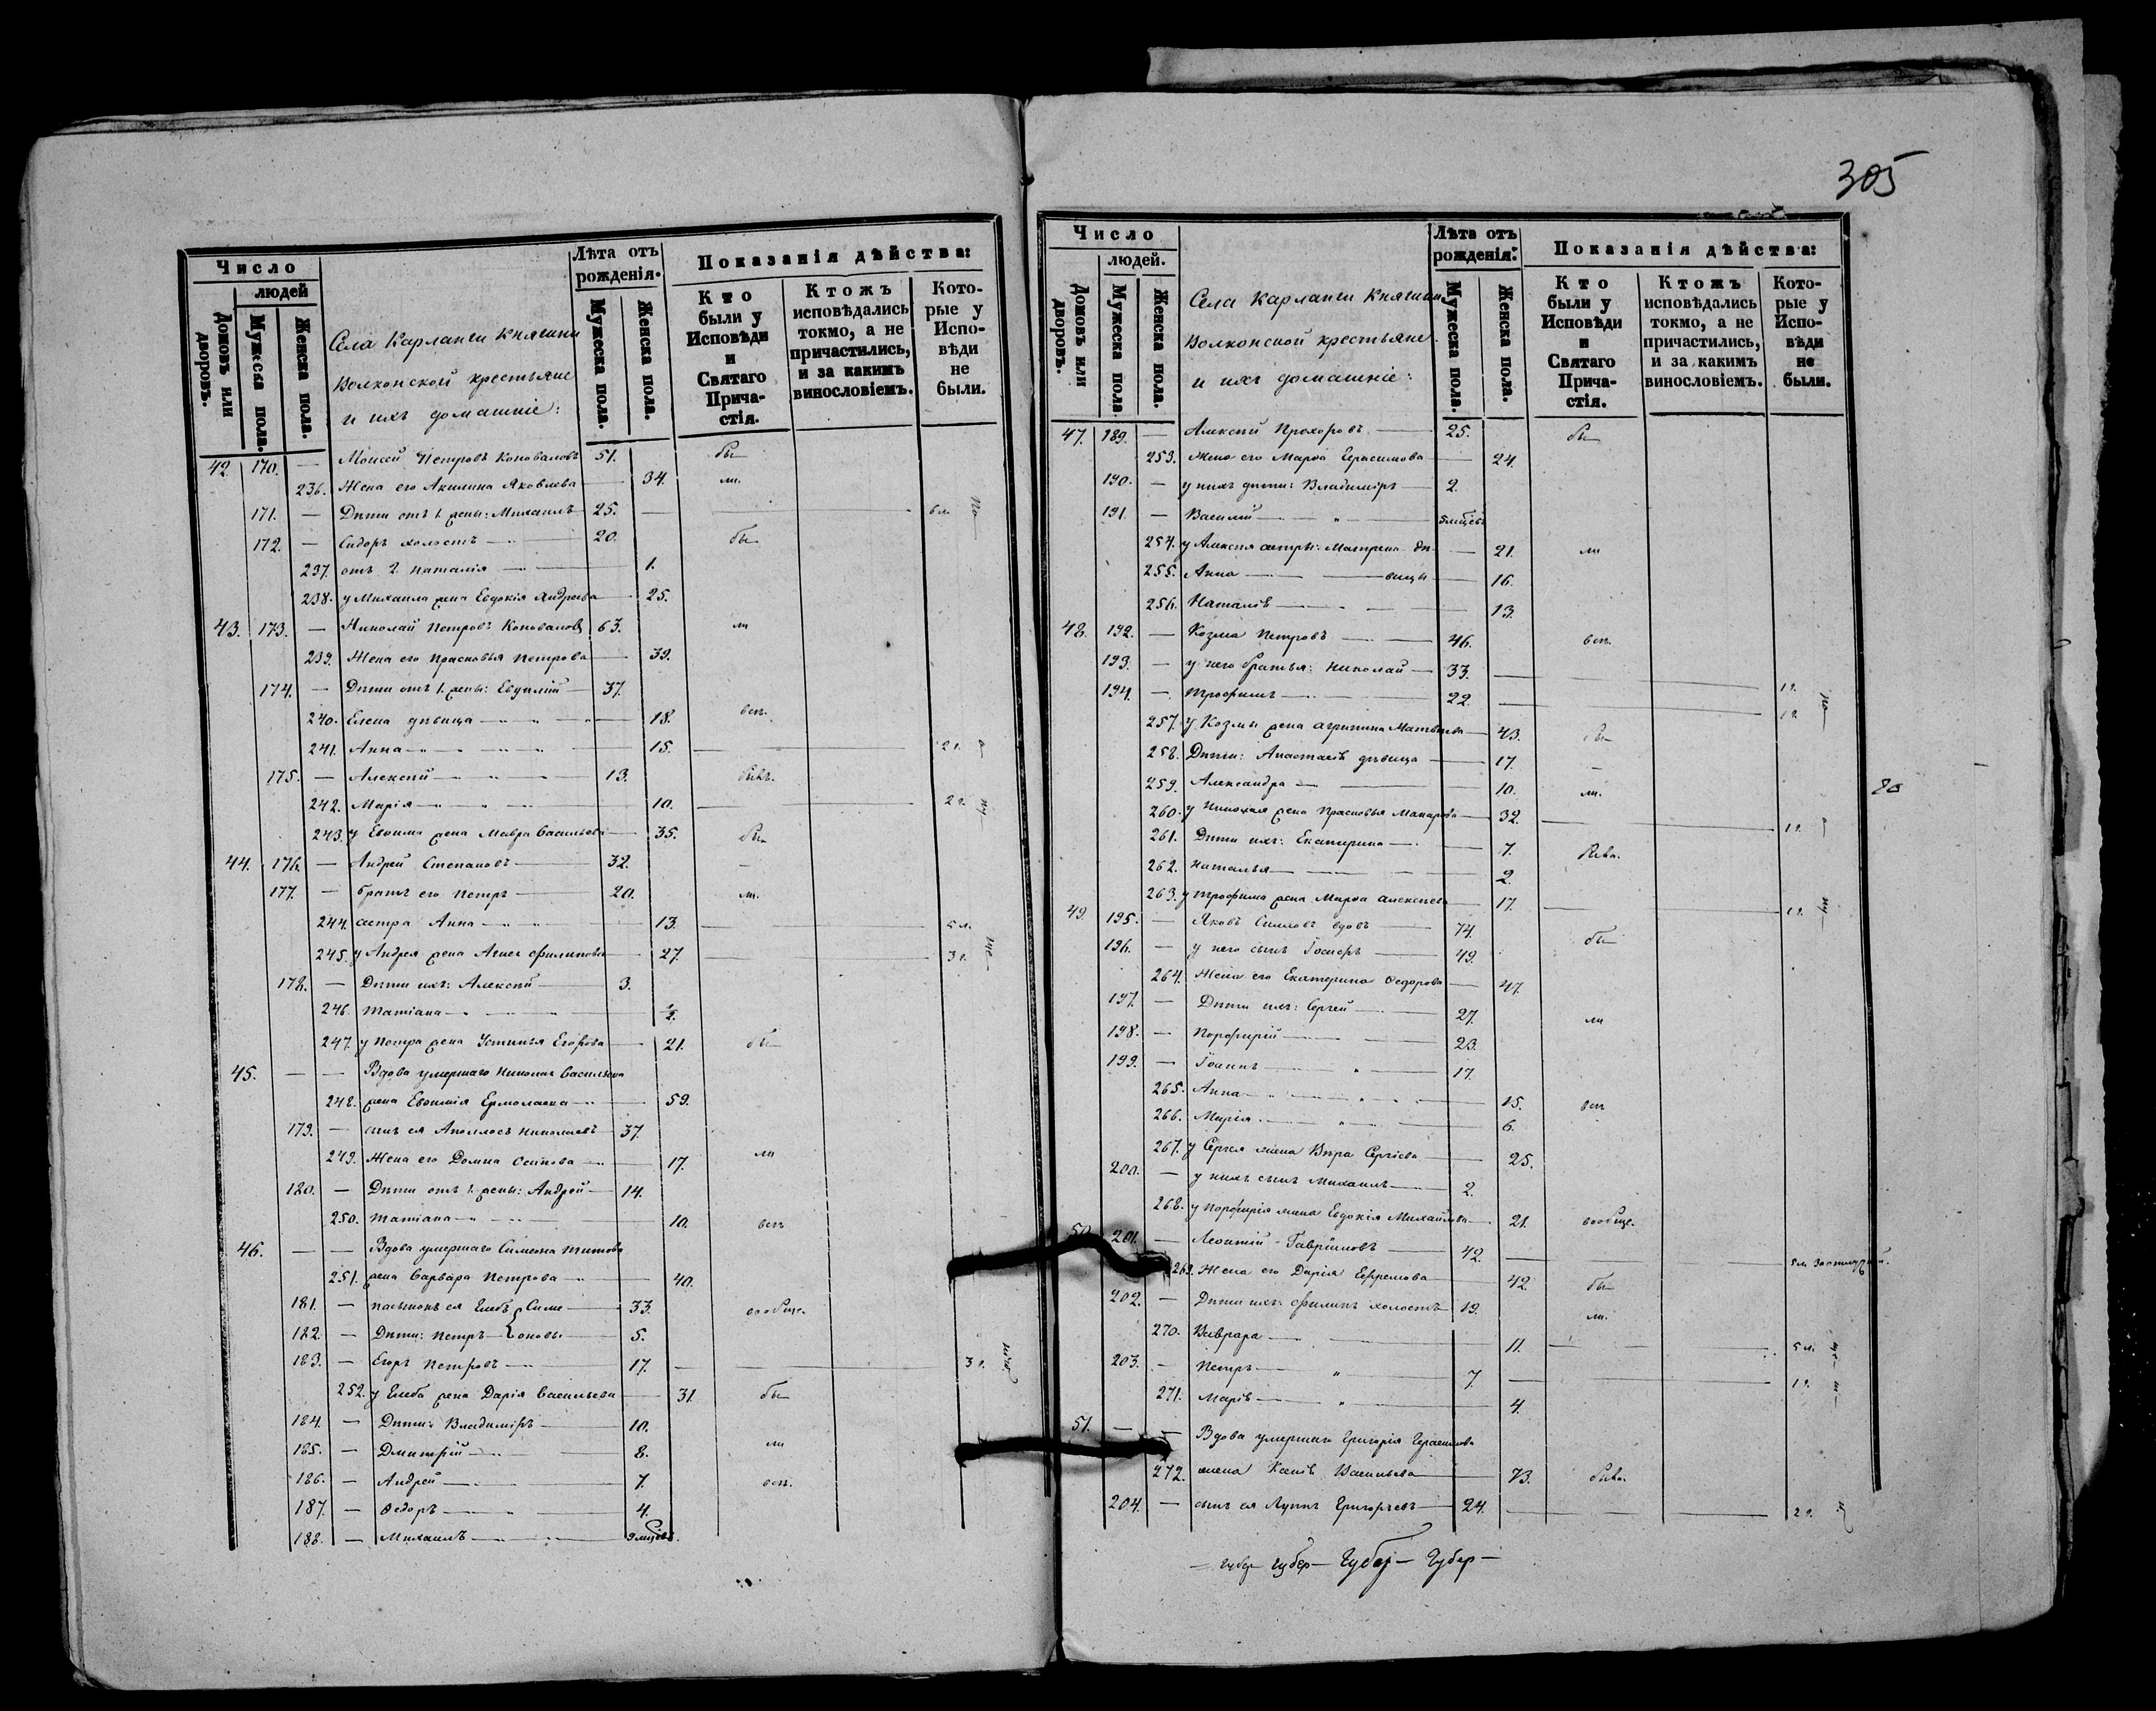 305
Число
людей
Домовъ или дворовъ.
Мужеска пола.
Женска пола.
Села Карланги Княгини
Волконской крестьяне
и ихъ домашніе:
Лѣта отъ рожденія.
Мужеска пола.
Женска пола.
Показанія дѣйства:
Кто были у Исповѣди и Святаго Прича-стія.
Ктожъ исповѣдались токмо, а не причастились, и за какимъ винословіемъ.
Кото-рые у Испо-вѣди не были.
42. 170. — Моисей Петровъ Коноваловъ 51. бы
236. Жена его Акилина Яковлева — 34. ли.
171. — Дѣти отъ 1. жены: Михаилъ 25.
172. — Сидоръ холостъ 20. бы
237. отъ 2. Наталія — 1.
238. у Михаила жена Евдокія Андреева — 25.
43. 173. — Николай Петровъ Коноваловъ 63. ли
239. Жена его Прасковья Петрова — 39.
174. — Дѣти отъ 1. жены: 37.
240. Елена дѣвица — 18. всѣ.
241. Анна — 15. 2 г.
175. — Алексѣй — 13.
242. Марія — 10. 2 г.
243. у жена Мавра Васильева — 35. бы
44. 176. — Андрей Степановъ — 32.
177. — братъ его Петръ — 20. ли.
244. сестра Анна — 13. 5 л.
245. у Андрея жена Филипова — 27. 3 г.
178. — Дѣти ихъ: Алексѣй — 3.
246. Татіана —
247. у Петра жена Устинья Егорова — 21. бы
45. — — Вдова умершаго Николая Васильева
248. жена Евѳимія Ермолаева — 59.
179. — сынъ ея Аполлосъ Николаевъ — 37.
249. Жена его Домна Осипова — 17. ли
180. — Дѣти отъ 1. жены: Андрей — 14.
250. Татіана — 10. всѣ
46. — — Вдова умершаго Симеона Титова
251. жена Варвара Петрова — 40.
181. — пасынокъ ея Глебъ Симе — 33. вообще.
182. — Дѣти: Петръ — оновы — 5.
183. — Егоръ Петровъ — 17. 3 г.
252. у Глеба жена Дарія Васильева — 31. бы
184. — Дѣти: Владиміръ — 10.
185. — Дмитрій — 8. ли
186. — Андрей — 7. всѣ.
187. — Ѳедоръ — 4.
188. — Михаилъ — 9 мцовъ.
Число
людей.
Домовъ или дворовъ.
Мужеска пола
Женска пола.
Села Карланги Княгини
Волконской крестьяне
и ихъ домашніе:
Лѣта отъ рожденія:
Мужеска пола.
Женска пола.
Показанія дѣйства:
Кто были у Исповѣди и Святаго Прича-стія.
Ктожъ исповѣдались токмо, а не причастились, и за какимъ винословіемъ.
Кото-рые у Испо-вѣди не были.
47. 189. — Алексѣй Прохоровъ — 25. бы
253. жена его Марѳа Герасимова — 24.
190. — у нихъ дѣти: Владиміръ — 2.
191. — Василій — 5 мѣцевъ
254. у Алексѣя сестры: Матрена дѣ- — 21. ли
255. Анна — вицы — 16.
256. Наталія — 13.
48. 192. — Козма Петровъ — 46. всѣ.
193. — у него братья: Николай — 33. 1 г.
194. — Трофимъ — 22. 1 г.
257. у Козмы жена Агрипина Матвѣева — 43. бы
258. Дѣти: Анастасія дѣвица — 17.
259. Александра — 10. ли.
260. у Николая жена Прасковья Макарова — 32. 1 г.
261. Дѣти ихъ: Екатерина — 7.
262. Наталья — 2.
263. у Трофима жена Марѳа Алексѣева — 17. 1 г.
49. 195. — Яковъ вдовъ — 74. бы
196. — у него сынъ Іосифъ — 49.
264. Жена его Екатерина Ѳедорова — 47.
197. — Дѣти ихъ: Сергей — 27. ли
198. — Порфирій — 23.
199. — Іоаннъ — 17.
265. Анна — 15. всѣ
266. Марія — 6.
267. у Сергея жена Вѣра Сергіева — 25.
200. — у нихъ сынъ Михаилъ — 2.
268. у Порфирія жена Евдокія Михайлова — 21. вообще.
50. 201. — Леонтій Гавриловъ — 42. 5 л.
269. Жена его Дарія Ефремова — 42. бы
202. — Дѣти ихъ: Филипъ холостъ — 19. ли.
270. Варвара — 11. 5 л.
203. — Петръ — 7. 1 г.
271. Марія — 4.
51. — — Вдова умершаго Григорія Герасимова
272. жена Ксенія Васильева — 73.
204. — сынъ ея Лупъ Григорьевъ — 24. 2 г.
— губер — губер — Губер — Губер —